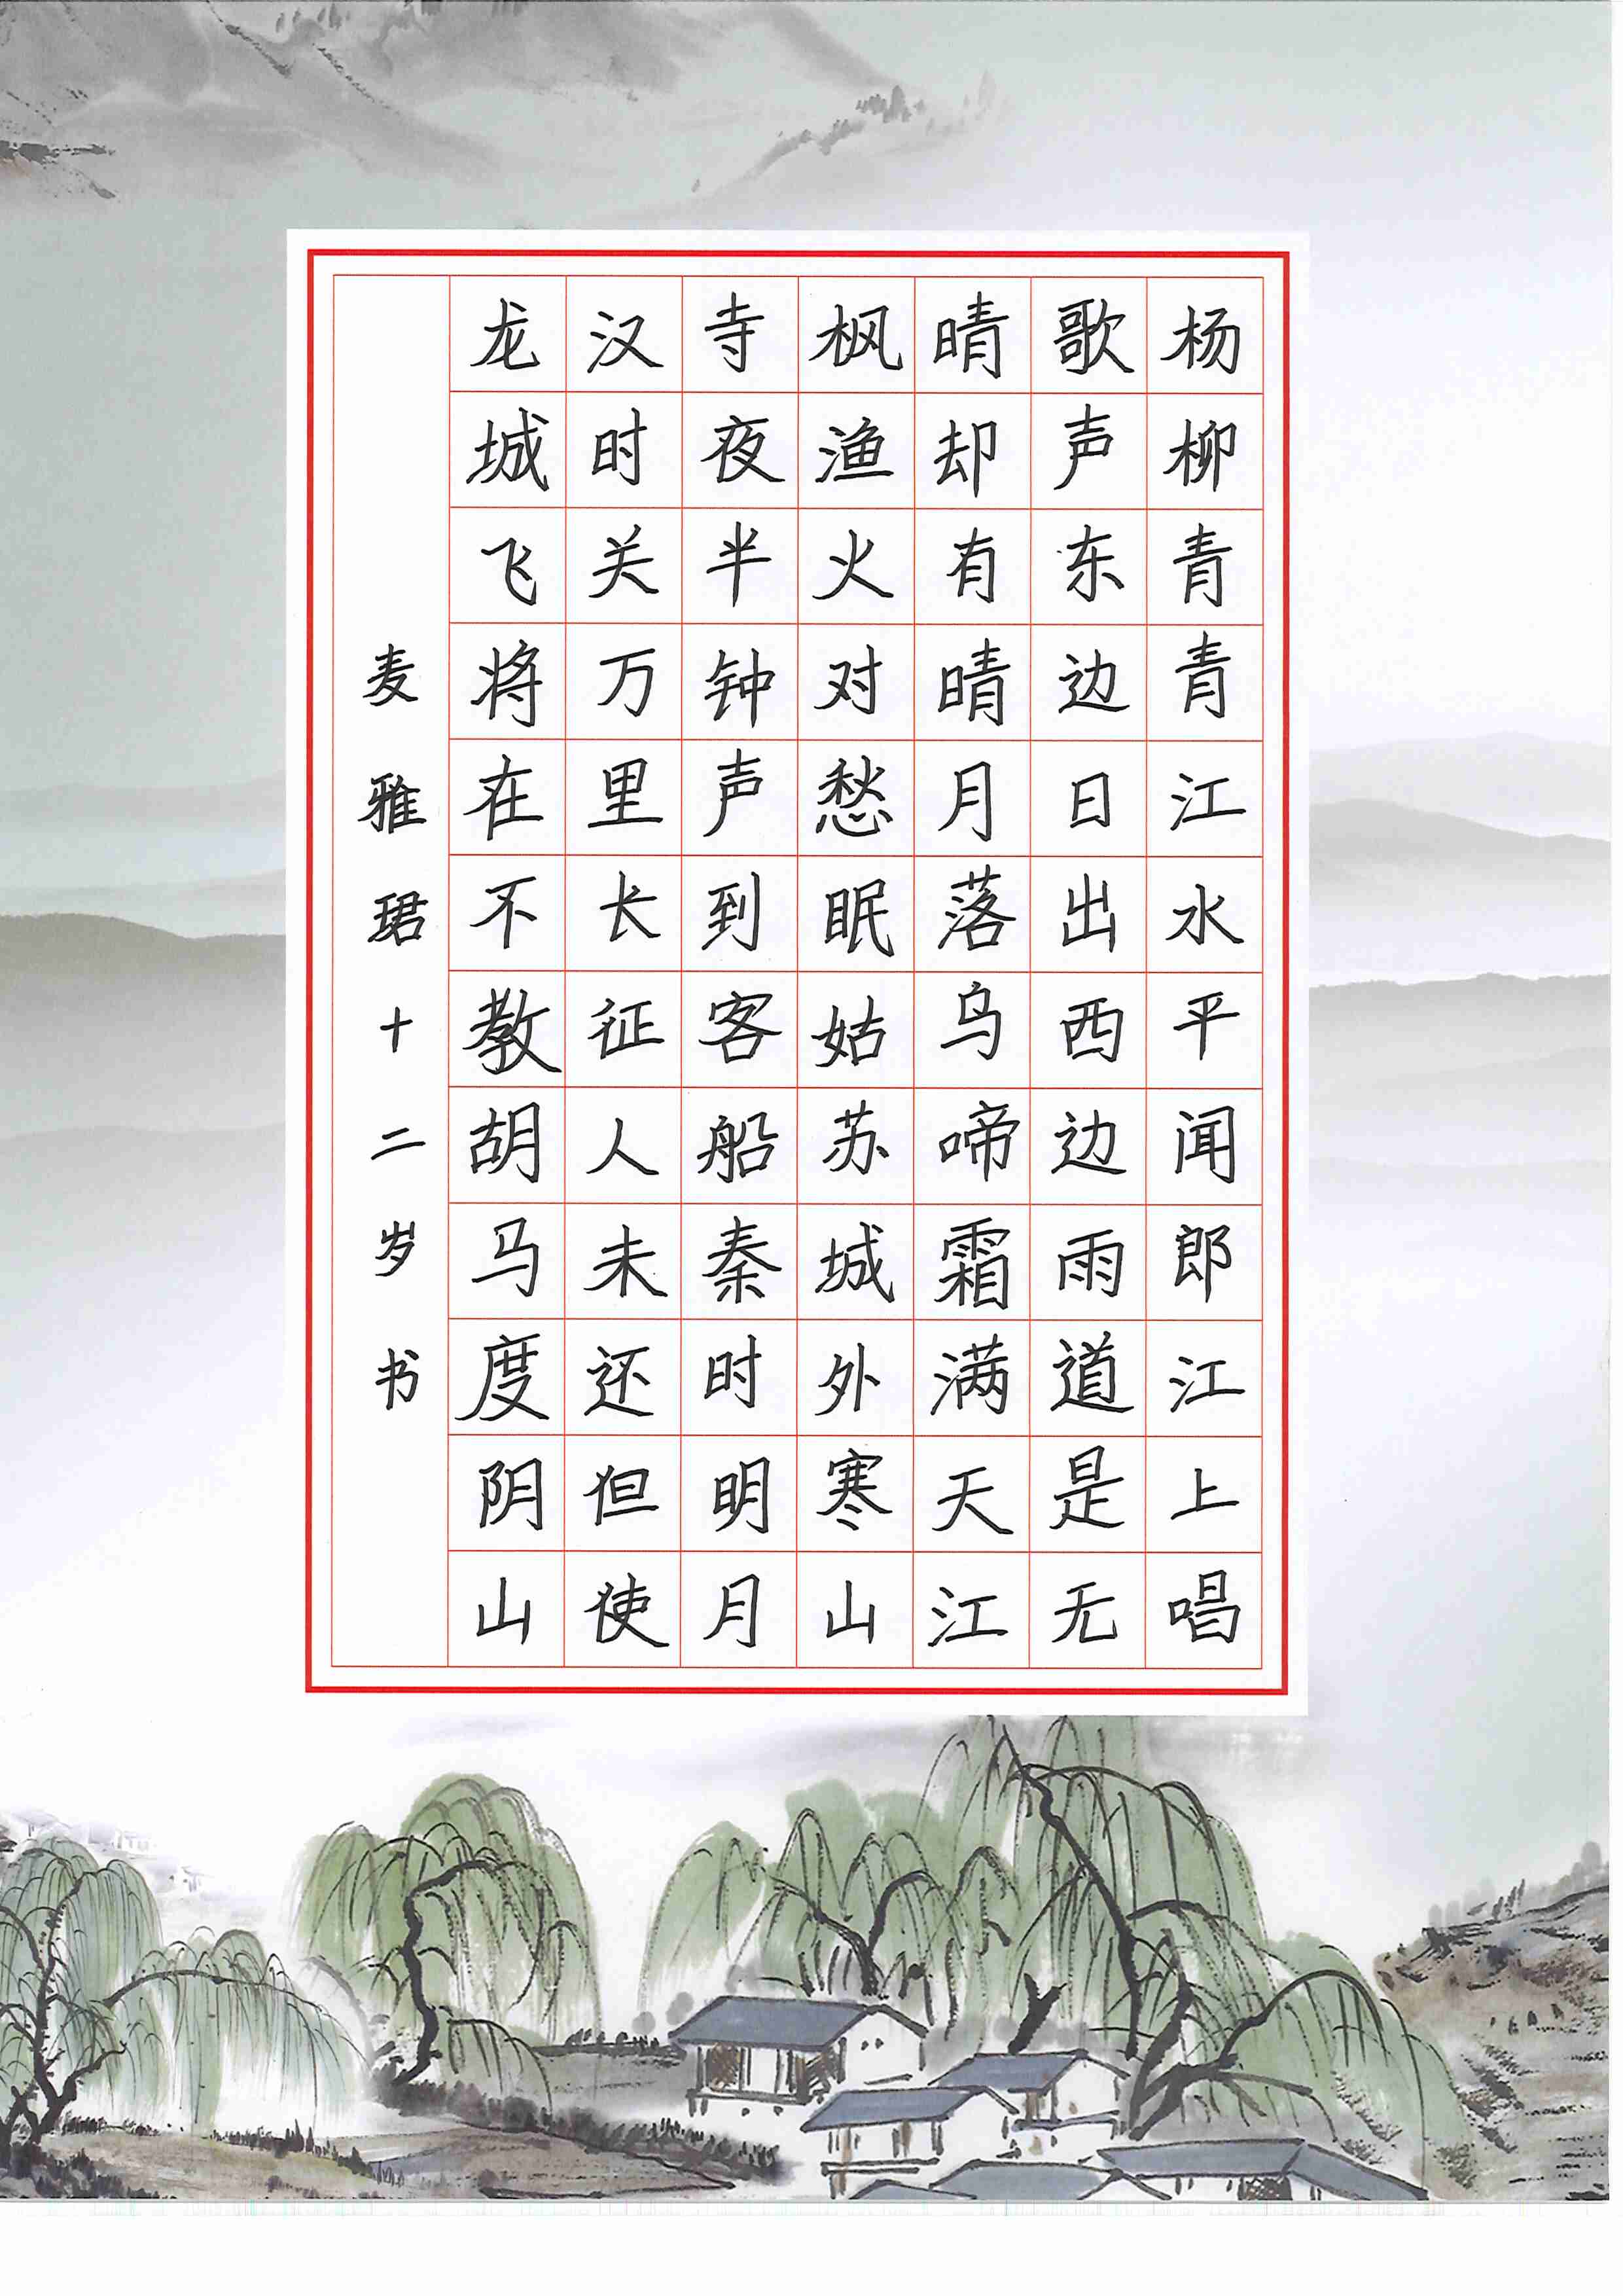 杨柳青青江水平闻郎江上唱
歌声东边日出西边雨道是无
晴却有晴月落乌啼霜满天江
枫渔火对愁眠姑苏城外寒山
寺夜半钟声到客船秦时明月
汉时关万里长征人未还但使
龙城飞将在不教胡马度阴山
麦雅珺十二岁书